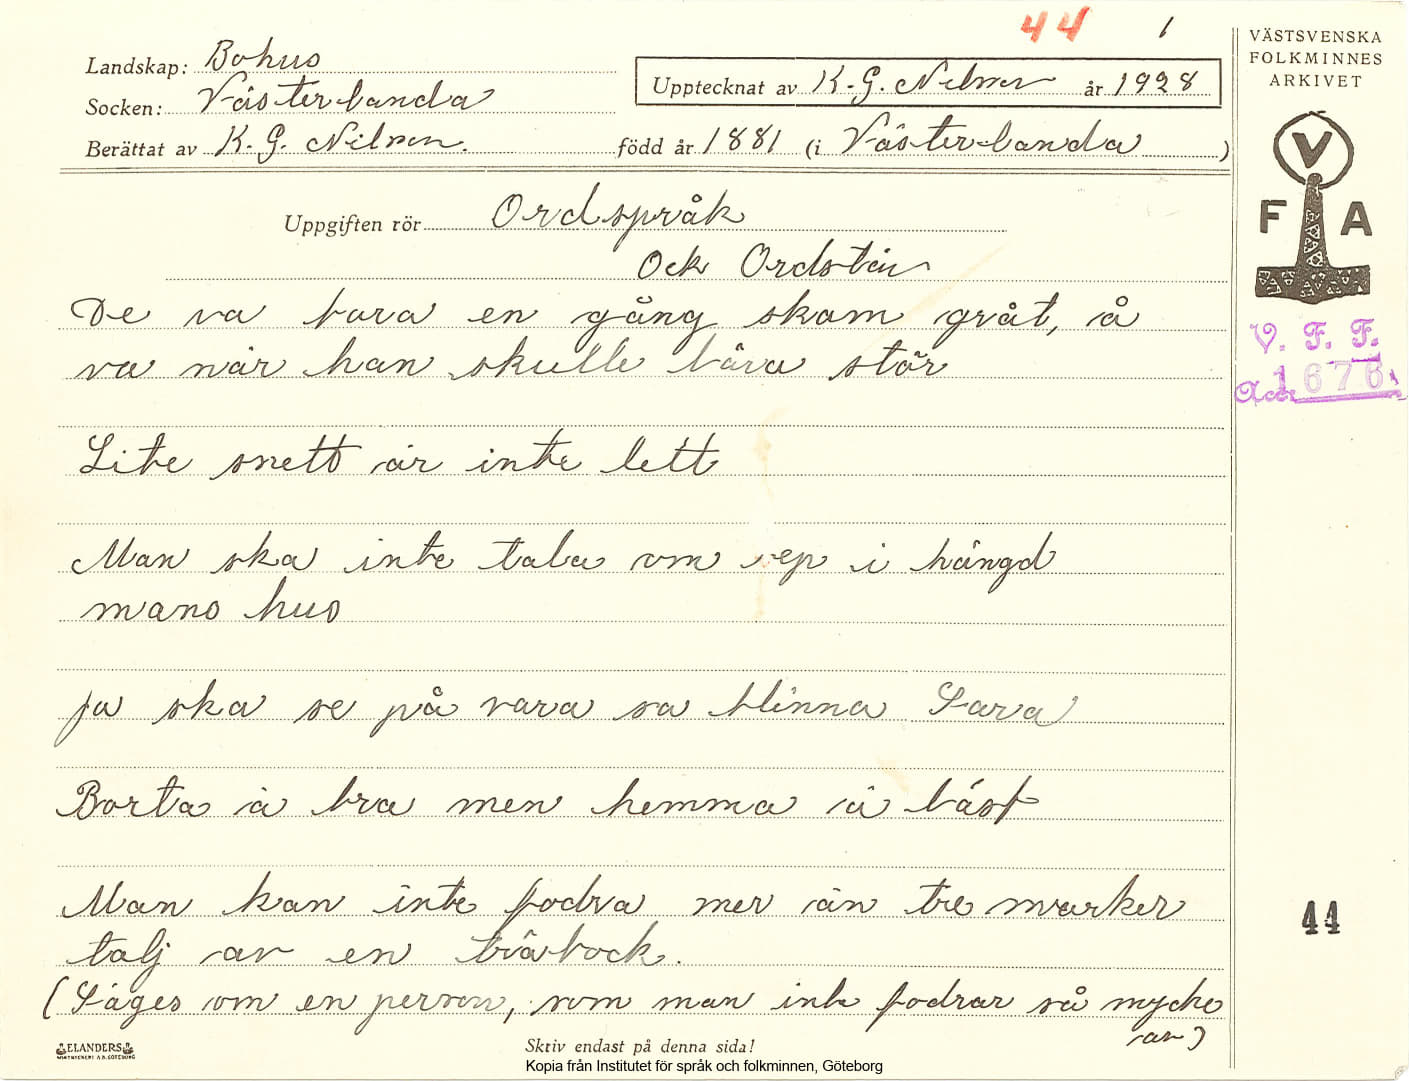 44 1
Landskap: Bohus
Socken: Västerlanda
Upptecknat av K. G. Nilsson år 1928
Berättat av K. G. Nilsson. född år 1881 (i Västerlanda)
Uppgiften rör Ordspråk
Ock Ordstäv
De va bara en gång skam gråt, å
va när han skulle bära stör
Lite snett är inte lett
Man ska inte tala om rep i hängd
mans hus
ja ska se på vara sa blinna Sara
Borta ä bra men hemma ä bäst
Man kan inte fodra mer än tre marker
talj av en träbock.
(Säges om en person, som man inte fodrar så mycke
av)
ELANDERS
Skriv endast på denna sida!
Kopia från Institutet för språk och folkminnen, Göteborg
VÄSTSVENSKA
FOLKMINNES
ARKIVET
V
F A
V. F. F.
Acc. 1676
44